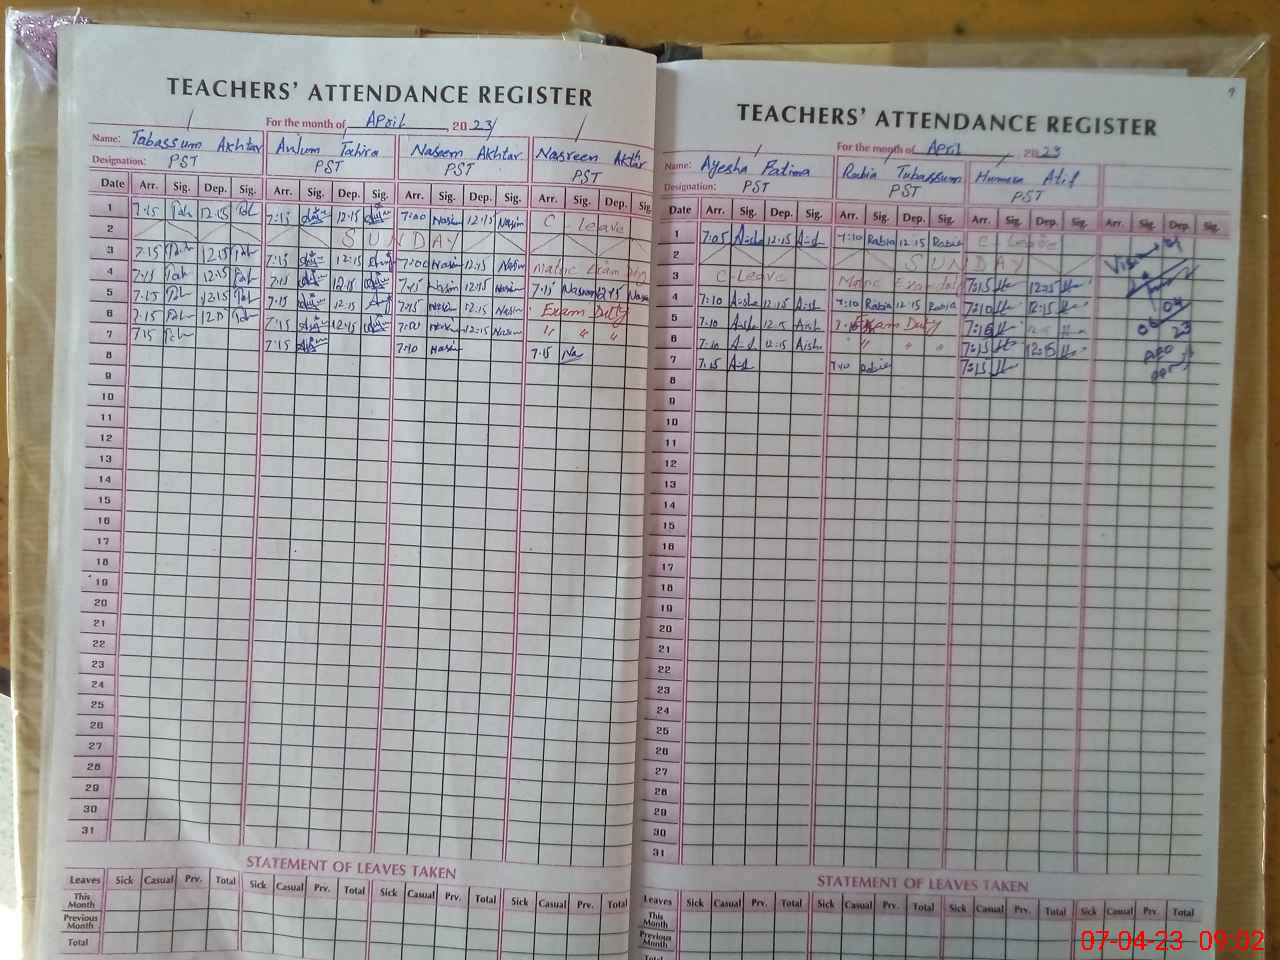 TEACHERS' ATTENDANCE REGISTER
For the month of April 2023
Name: Tabassum Akhtar Anjum Tahira Naseem Akhtar Nasreen Akhtar
Designation: PST PST PST PST
Date Arr. Sig. Dep. Sig. Arr. Sig. Dep. Sig. Arr. Sig. Dep. Sig. Arr. Sig. Dep. Sig.
1 7:15 12:15 7:15 12:15 7:00 Nasim 12:15 Nasim C Leave
2 SUNDAY
3 7:15 12:15 7:15 12:15 7:00 Nasim 12:15 Nasim Matric Exam Duty
4 7:15 12:15 7:15 12:15 7:15 Nasim 12:15 Nasim 7:15 Nasreen 12:15
5 7:15 12:15 7:15 12:15 7:15 Nasim 12:15 Nasim Exam Duty
6 7:15 12:15 7:15 12:15 7:00 12:15 Nasim " "
7 7:15 7:15 7:10 Nasim 7:15
8
9
10
11
12
13
14
15
16
17
18
19
20
21
22
23
24
25
26
27
28
29
30
31
STATEMENT OF LEAVES TAKEN
Leaves Sick Casual Prv. Total Sick Casual Prv. Total Sick Casual Prv. Total Sick Casual Prv. Total
This Month
Previous Month
Total
9
TEACHERS' ATTENDANCE REGISTER
For the month of April 2023
Name: Ayesha Fatima Rabia Tubassum Humera Atif
Designation: PST PST PST
Date Arr. Sig. Dep. Sig. Arr. Sig. Dep. Sig. Arr. Sig. Dep. Sig. Arr. Sig. Dep. Sig.
1 7:05 12:15 7:10 Rabia 12:15 Rabia C Leave
2 SUNDAY
3 C-Leave Matric Exam Duty 7:15 12:15
4 7:10 12:15 7:10 Rabia 12:15 Rabia 7:10 12:15
5 7:10 12:15 Exam Duty 7:15 12:15
6 7:10 12:15 " " " 7:15 12:15
7 7:15 7:10 Rabia 7:15
8
9
10
11
12
13
14
15
16
17
18
19
20
21
22
23
24
25
26
27
28
29
30
31
STATEMENT OF LEAVES TAKEN
Leaves Sick Casual Prv. Total Sick Casual Prv. Total Sick Casual Prv. Total Sick Casual Prv. Total
This Month
Previous Month
Total
07-04-23 09:02